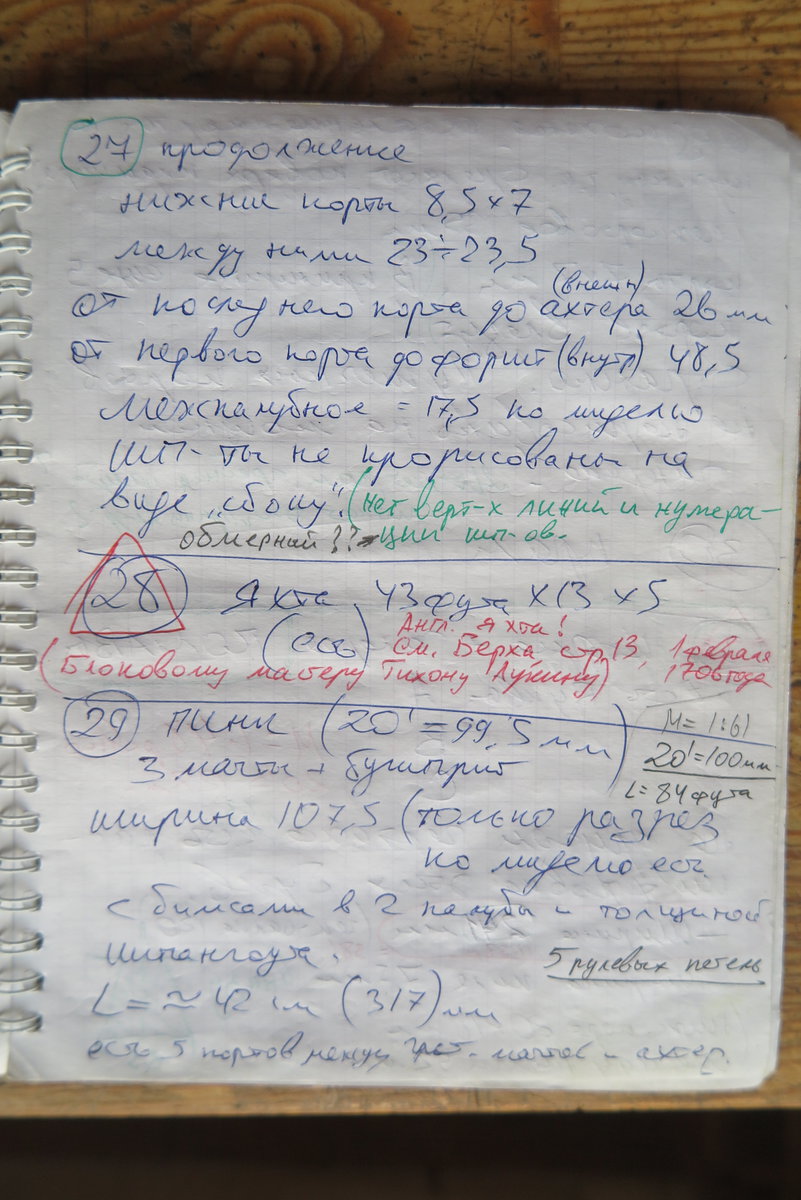 27 продолжение
нижние порты 8,5×7
между ними 23÷23,5
(внешн)
от последнего порта до ахтера 26 мм
от первого порта до форшт (внутр) 48,5
Межпалубное = 17,5 по миделю
ШП-ты не прорисованы на
виде „сбоку". (нет верт-х линий и нумера-
обмерный ?? ции шп-ов.
28 Яхта 43 фута × 13 × 5
(есть) Англ. яхта!
См. Берха, стр. 13, 1 февраля
(Блоковому мастеру Тихону Лукину) 1706 года
29 Пинк (20' = 99,5 мм) М = 1:61
3 мачты + бушприт 20' = 100 мм
L = 84 фута
ширина 107,5 (только разрез
по миделю есть
с бимсами в 2 палубы и толщиной
шпангоута.
5 рулевых петель
L = ≈ 42 см (317) мм
есть 5 портов между грот. мачтой и ахтер.